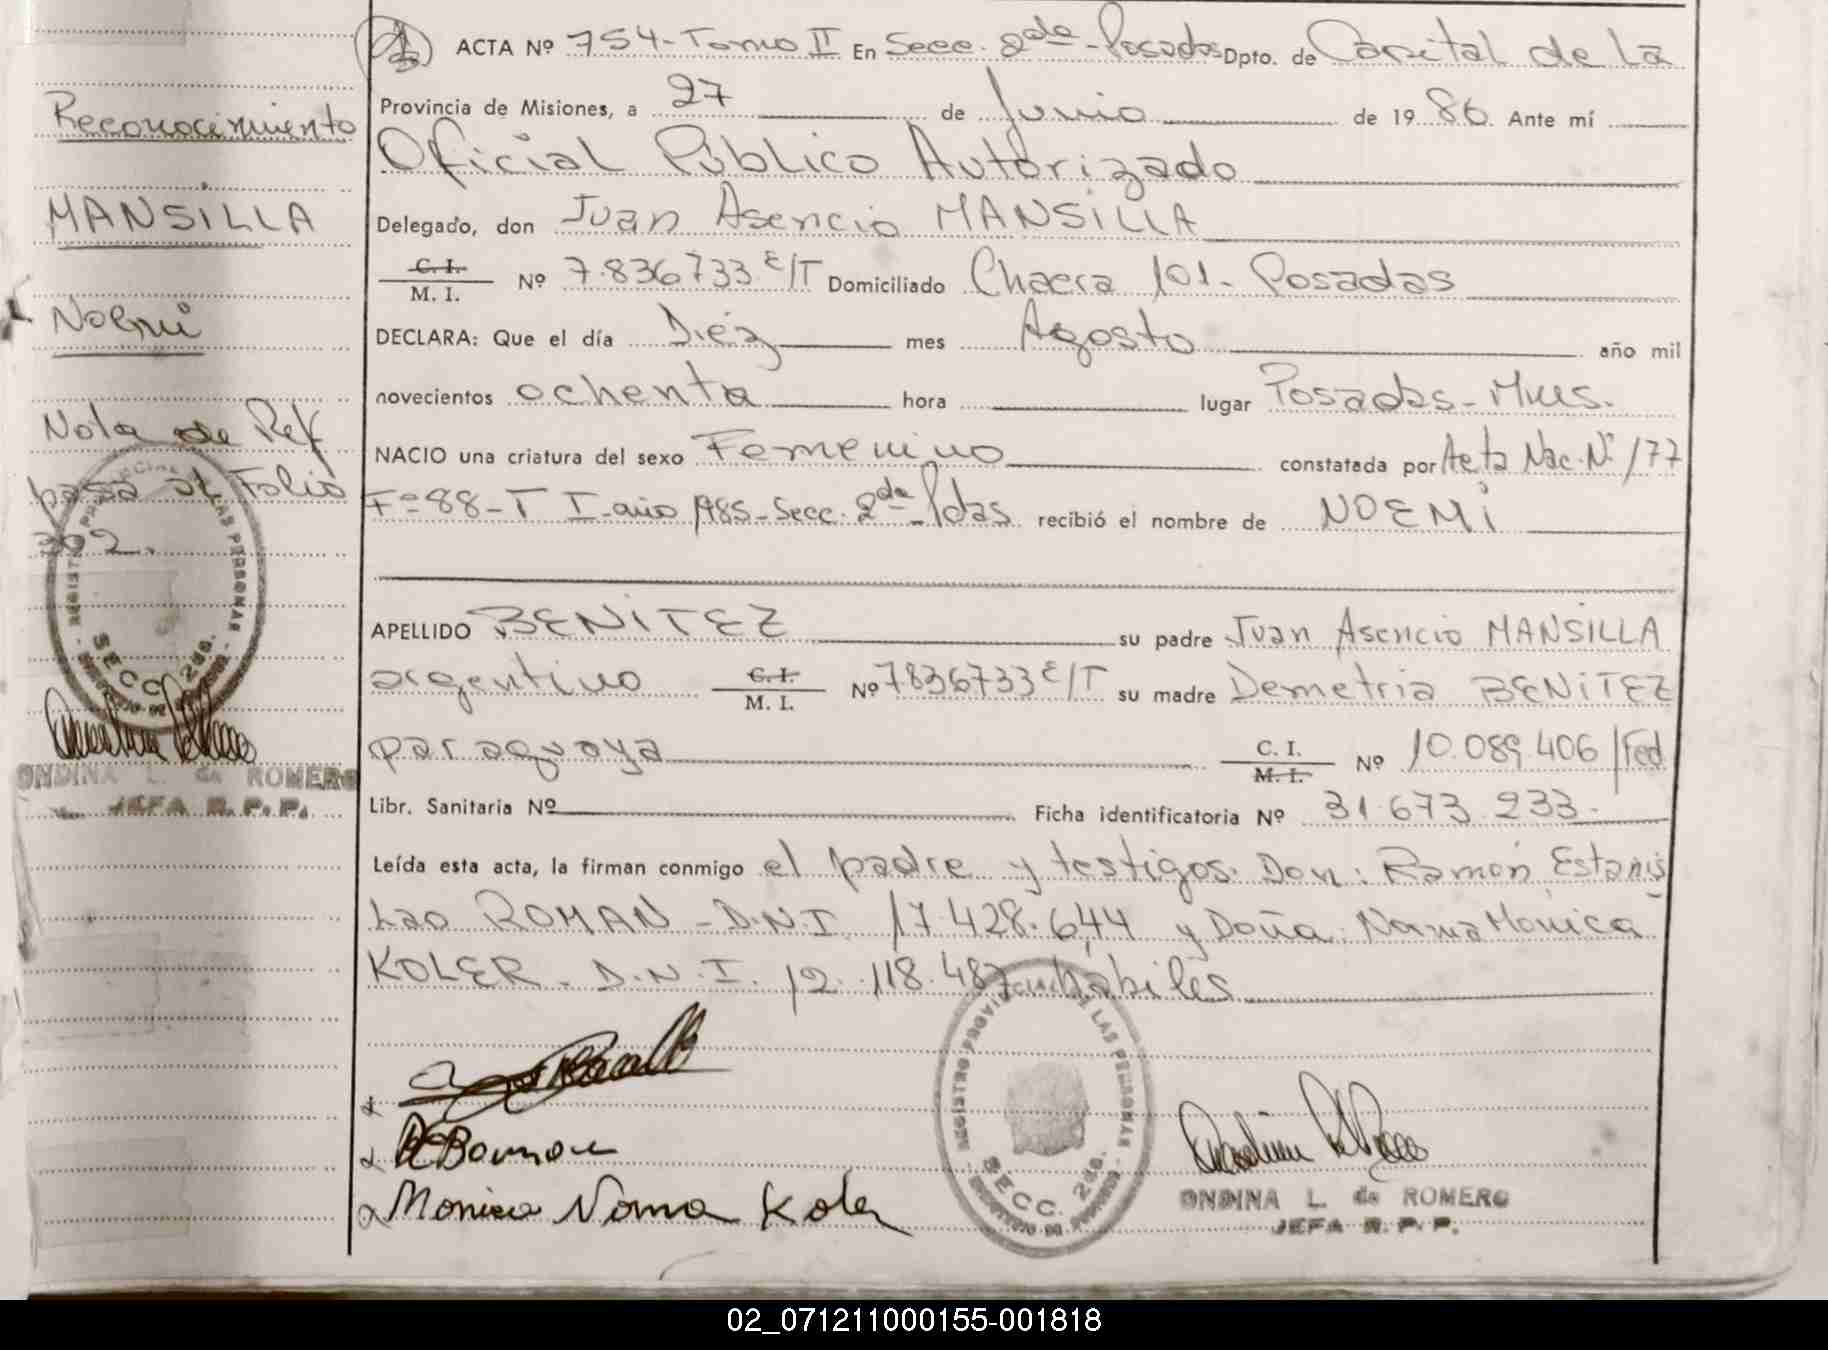 Reconocimiento
MANSILLA
Noemi
Nota de Ref
pasa al Folio
302.
REGISTRO PROVINCIAL DE LAS PERSONAS
SECC. 2da.
ONDINA L. de ROMERO
JEFA R. P. P.
ACTA Nº 754-Tomo II En Secc. 2da-Posadas Dpto. de Capital de La
Provincia de Misiones, a 27 de Junio de 1986. Ante mí
Oficial Público Autorizado
Delegado, don Juan Asencio MANSILLA
C. I.
M. I. Nº 7.836733 E/T Domiciliado Chacra 101- Posadas
DECLARA: Que el día Diéz mes Agosto año mil
novecientos ochenta hora lugar Posadas-Mnes.
NACIO una criatura del sexo Femenino constatada por Acta Nac. Nº 177
Fº 88-T I-año 1985-Secc. 2da-Pdas recibió el nombre de NOEMI
APELLIDO BENITEZ su padre Juan Asencio MANSILLA
argentino C. I.
M. I. Nº 7836733 E/T su madre Demetria BENITEZ
paraguaya C. I.
M. I. Nº 10.089.406/Fed
Libr. Sanitaria Nº Ficha identificatoria Nº 31.673.233.-
Leída esta acta, la firman conmigo el padre y testigos. Don: Ramón Estanis
lao ROMAN - D.N.I. 17.428.644 y Doña: Norma Mónica
KOLER - D.N.I. 12.118.487 hábiles
Monica Norma Koler
REGISTRO PROVINCIAL DE LAS PERSONAS
SECC. 2da.
ONDINA L. de ROMERO
JEFA R. P. P.
02_071211000155-001818